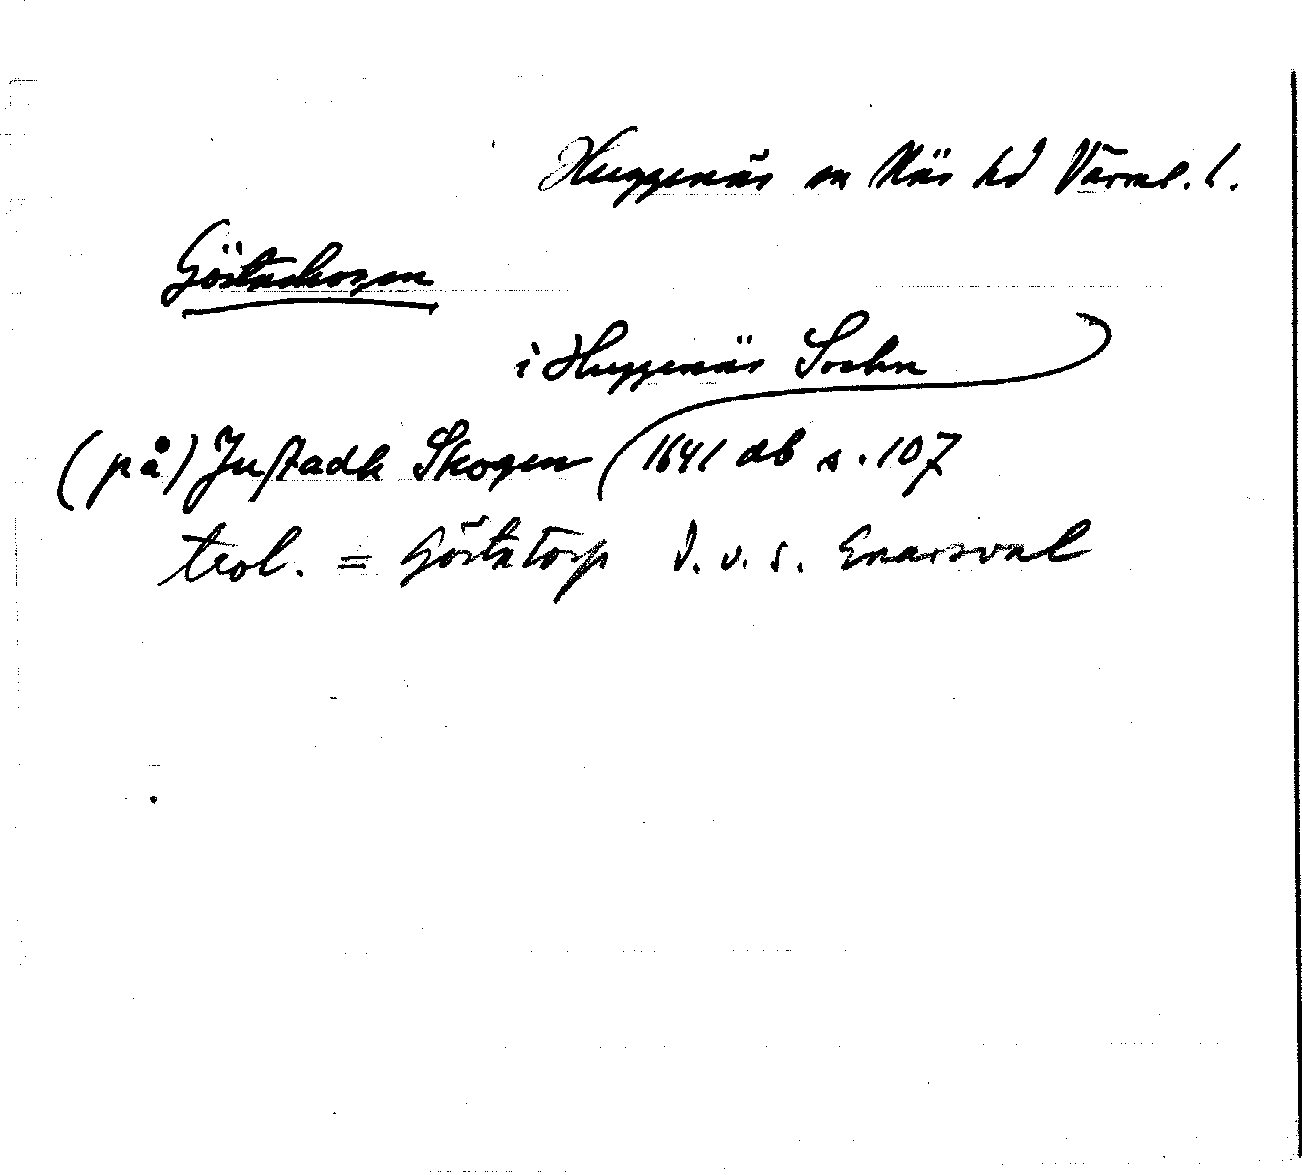 Huggenäs sn Näs hd Värml. l.
Göstaskogen
i Huggenäs Sochn
(på) Justadh Skogen 1641 db s. 107
trol. = Göstatorp D. v. s. Enarsval